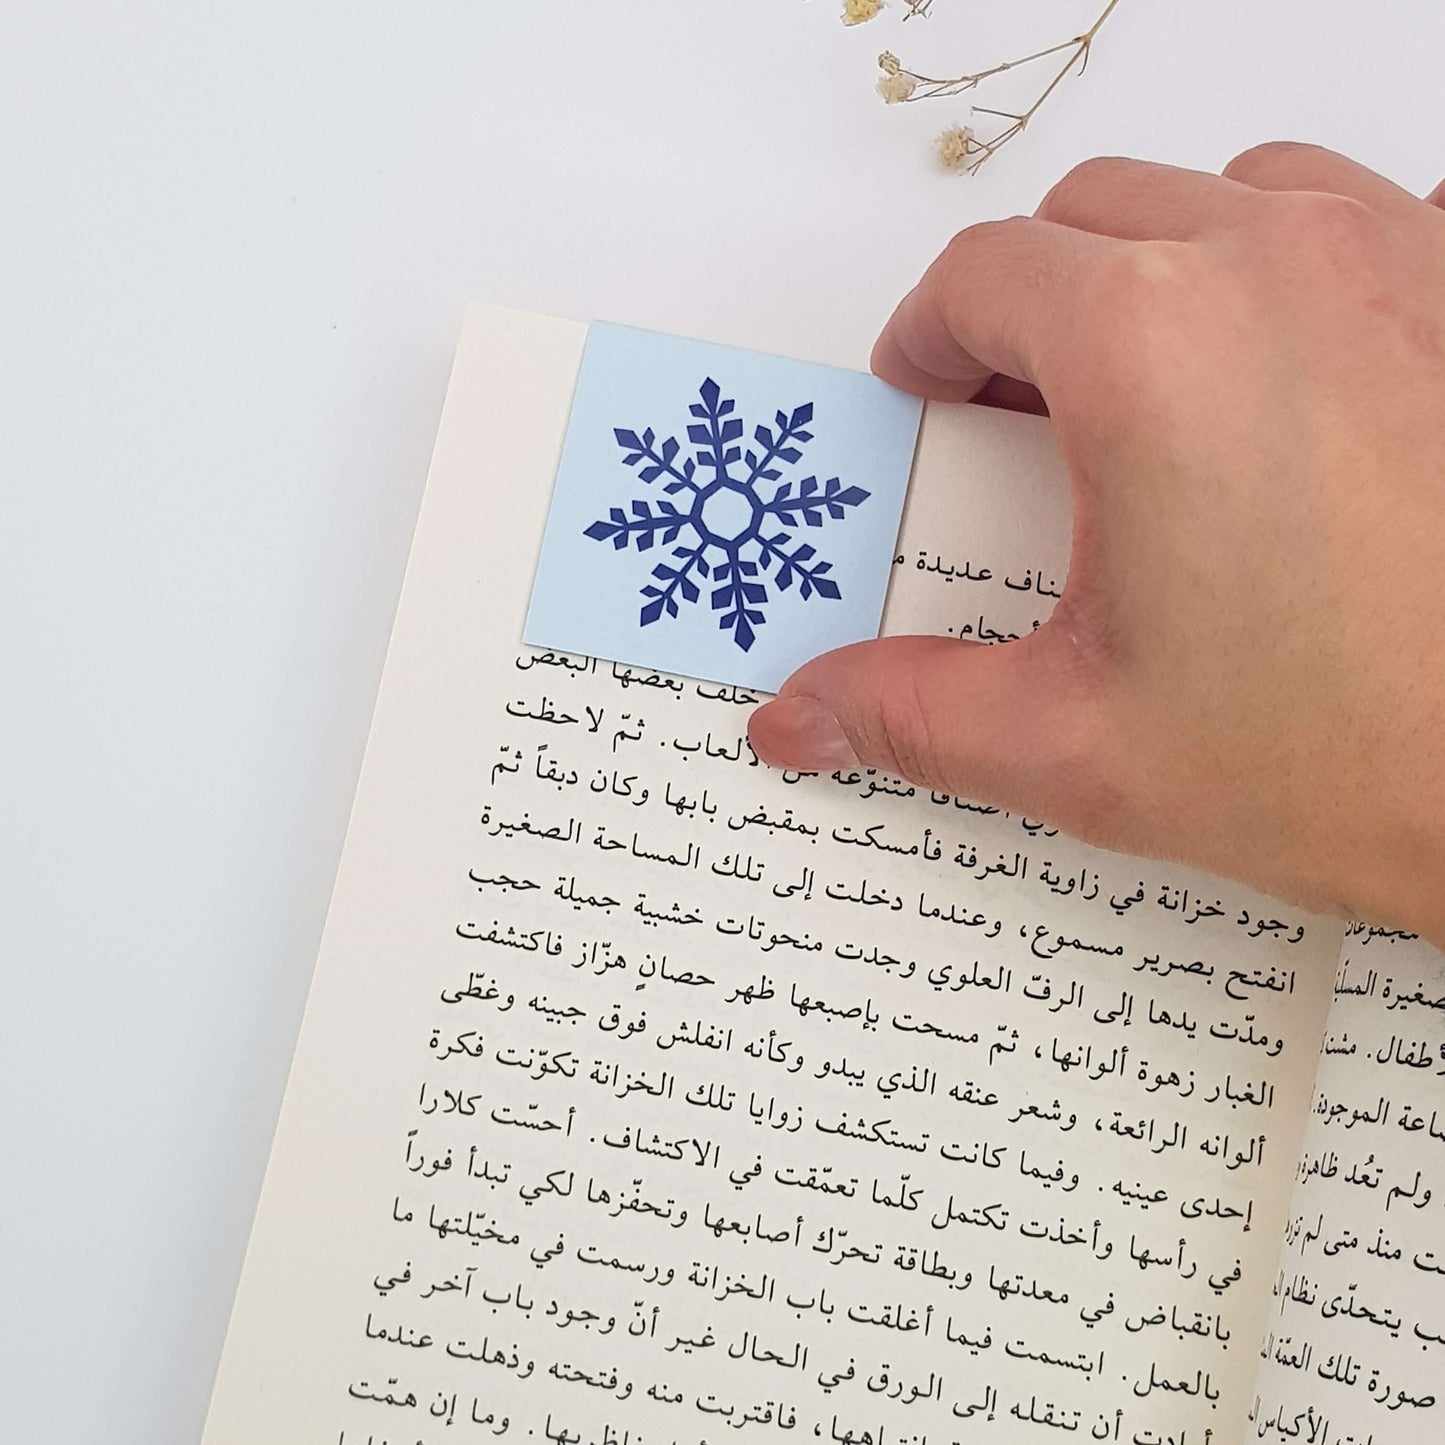 ـناف عـديـدة
أحجام.
خلف بعضها البعض
الألعاب. ثمّ لاحظت
متنوّعة
وجود خزانة في زاوية الغرفة فأمسكت بمقبض بابها وكان دبقاً ثمّ
انفتح بصرير مسموع، وعندما دخلت إلى تلك المساحة الصغيرة
ومدّت يدها إلى الرفّ العلوي وجدت منحوتات خشبية جميلة حجب
الغبار زهوة ألوانها، ثمّ مسحت بإصبعها ظهر حصانٍ هزّاز فاكتشفت
ألوانه الرائعة، وشعر عنقه الذي يبدو وكأنه انفلش فوق جبينه وغطّى
إحدى عينيه. وفيما كانت تستكشف زوايا تلك الخزانة تكوّنت فكرة
في رأسها وأخذت تكتمل كلّما تعمّقت في الاكتشاف. أحسّت كلارا
بانقباض في معدتها وبطاقة تحرّك أصابعها وتحفّزها لكي تبدأ فوراً
بالعمل. ابتسمت فيما أغلقت باب الخزانة ورسمت في مخيّلتها ما
أرادت أن تنقله إلى الورق في الحال غير أنّ وجود باب آخر في
فاقتربت منه وفتحته وذهلت عندما
وما إن همّت
صغيرة
الأطفال.
الموجودة
ولم تعُد ظاهرة
منذ متى لم
يتحدّى نظام
صورة تلك العمّة
الأكياس